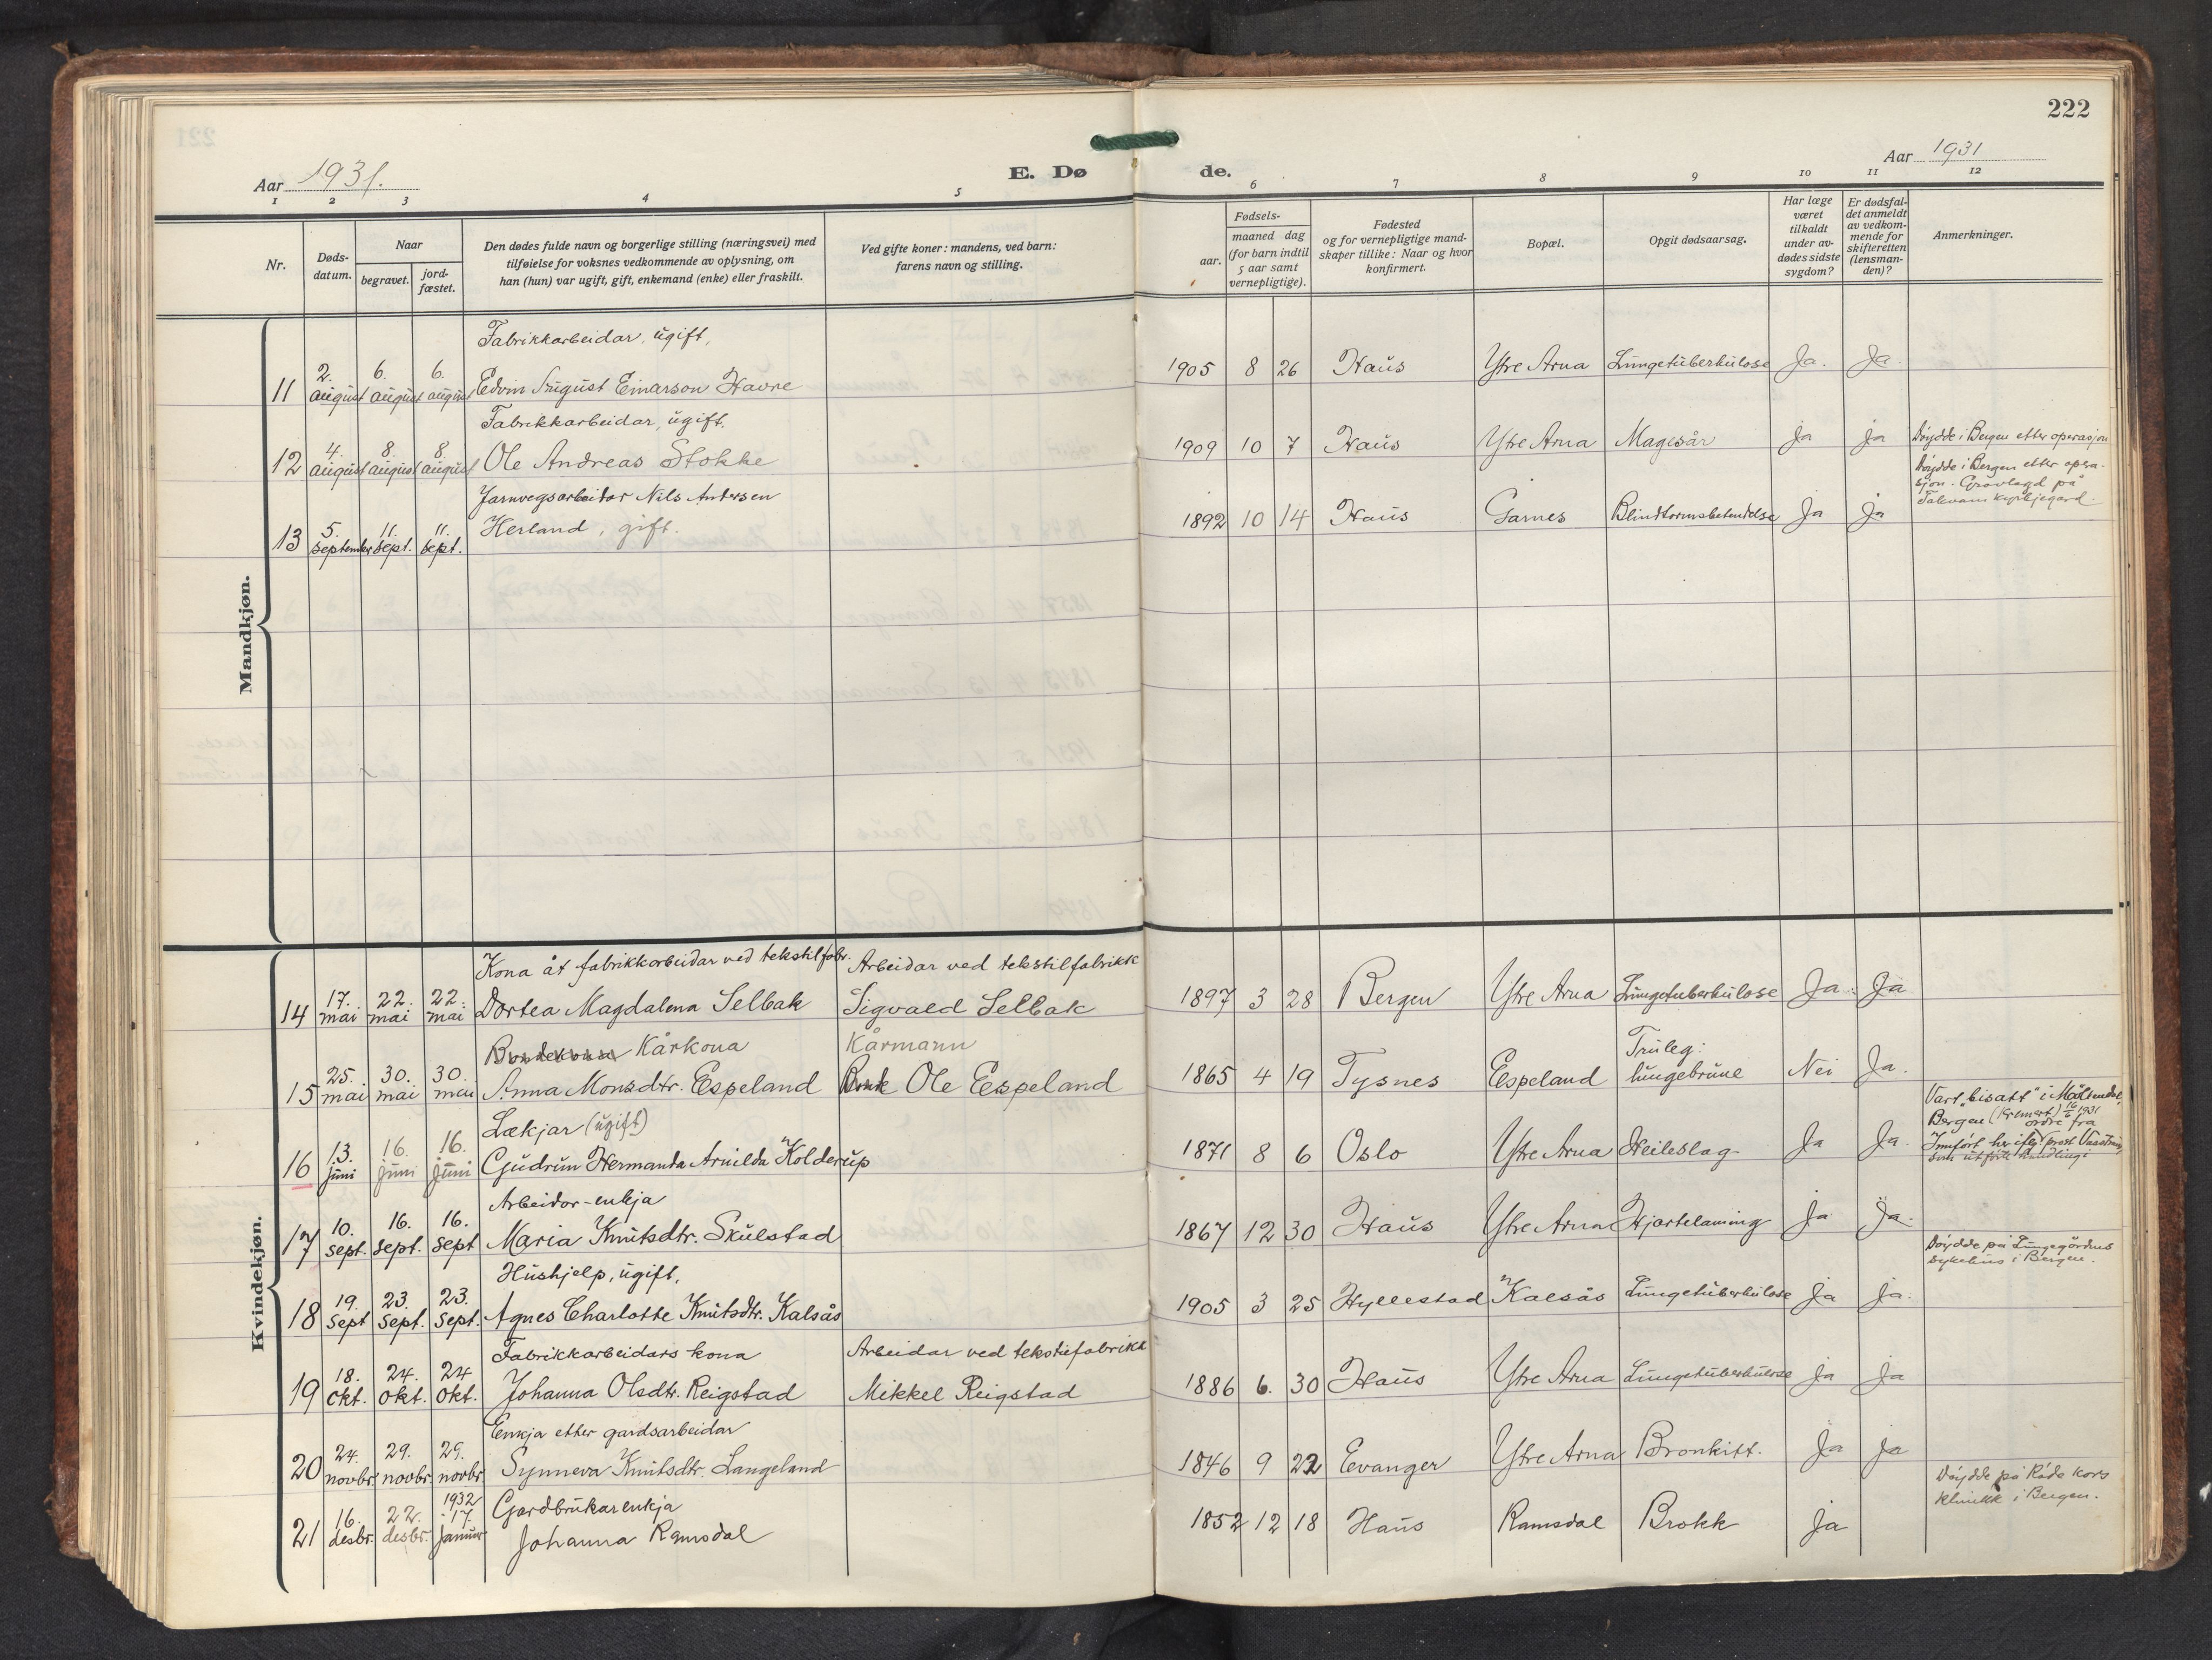 222
Aar 1931.
E. Døde.
Aar 1931
1 2 3 4 5 6 7 8 9 10 11 12
Nr.
Døds-
datum.
Naar
begravet.
jord-
fæstet.
Den dødes fulde navn og borgerlige stilling (næringsvei) med
tilføielse for voksnes vedkommende av oplysning, om
han (hun) var ugift, gift, enkemand (enke) eller fraskilt.
Ved gifte koner: mandens, ved barn:
farens navn og stilling.
Fødsels-
aar.
maaned dag
(for barn indtil
5 aar samt
vernepligtige).
Fødested
og for vernepligtige mand-
skaper tillike: Naar og hvor
konfirmert.
Bopæl.
Opgit dødsaarsag.
Har læge
været
tilkaldt
under av-
dødes sidste
sygdom?
Er dødsfal-
det anmeldt
av vedkom-
mende for
skifteretten
(lensman-
den)?
Anmerkninger.
Mandkjøn.
Fabrikkarbeidar, ugift,
11 2. august 6. august 6. august Edvin August Einarson Havre 1905 8 26 Haus Ytre Arna Lungetuberkulose Ja. Ja.
Fabrikkarbeidar, ugift.
12 4. august 8. august 8. august Ole Andreas Stokke 1909 10 7 Haus Ytre Arna Magesår Ja Ja Döydde i Bergen etter operasjon
Jarnvegsarbeidar Nils Andersen
13 5. september 11. sept. 11. sept. Herland, gift. 1892 10 14 Haus Garnes Blindtarmsbetendelse Ja Ja Döydde i Bergen etter opera-
sjon. Gravlagd på
Takvam kyrkjegard.
Kvindekjøn.
Kona åt fabrikkarbeidar ved tekstilfabr. Arbeidar ved tekstilfabrikk
14 17. mai 22. mai 22. mai Dortea Magdalena Selbak Sigvald Selbak 1897 3 28 Bergen Ytre Arna Lungetuberkulose Ja. Ja
Bondekona Kårkona Kårmann
15 25. mai 30. mai 30. mai Anna Monsdtr. Espeland Bonde Ole Espeland 1865 4 19 Tysnes Espeland Truleg: lungebrune Nei Ja.
Lækjar (ugift)
16 13. juni 16. juni 16. juni Gudrun Hermanda Arnilda Kolderup 1871 8 6 Oslo Ytre Arna Heileslag Ja Ja. Vart "bisatt" i Møllendal,
Bergen (kremert) 16/6 1931
Innfört her iflg. ordre fra prost
som utförte handlingi
Arbeidar-enkja
17 10. sept. 16. sept. 16. sept Maria Knutsdtr. Skulstad 1867 12 30 Haus Ytre Arna Hjartelaming Ja Ja.
Hushjelp, ugift,
18 19. sept 23. sept. 23. sept. Agnes Charlotte Knutsdtr. Kalsås 1905 3 25 Hyllestad Kalsås Lungetuberkulose Ja Ja. Döydde på Lungegårdens
sykehus i Bergen.
Fabrikkarbeidars kona Arbeidar ved tekstilfabrikk
19 18. okt. 24. okt. 24 okt. Johanna Olsdtr. Reigstad Mikkel Reigstad 1886 6. 30 Haus Ytre Arna Lungetuberkulose Ja Ja
Enkja etter gardsarbeidar
20 24. novbr. 29. novbr. 29. novbr. Synneva Knutsdtr. Langeland 1846 9 22 Evanger Ytre Arna Bronkitt. Ja Ja
Gardbrukarenkja
21 16. desbr. 22. desbr. 1932 17. januar Johanna Ramsdal 1852 12 18 Haus Ramsdal Brokk Ja Döydde på Röde Kors
klinikk i Bergen.